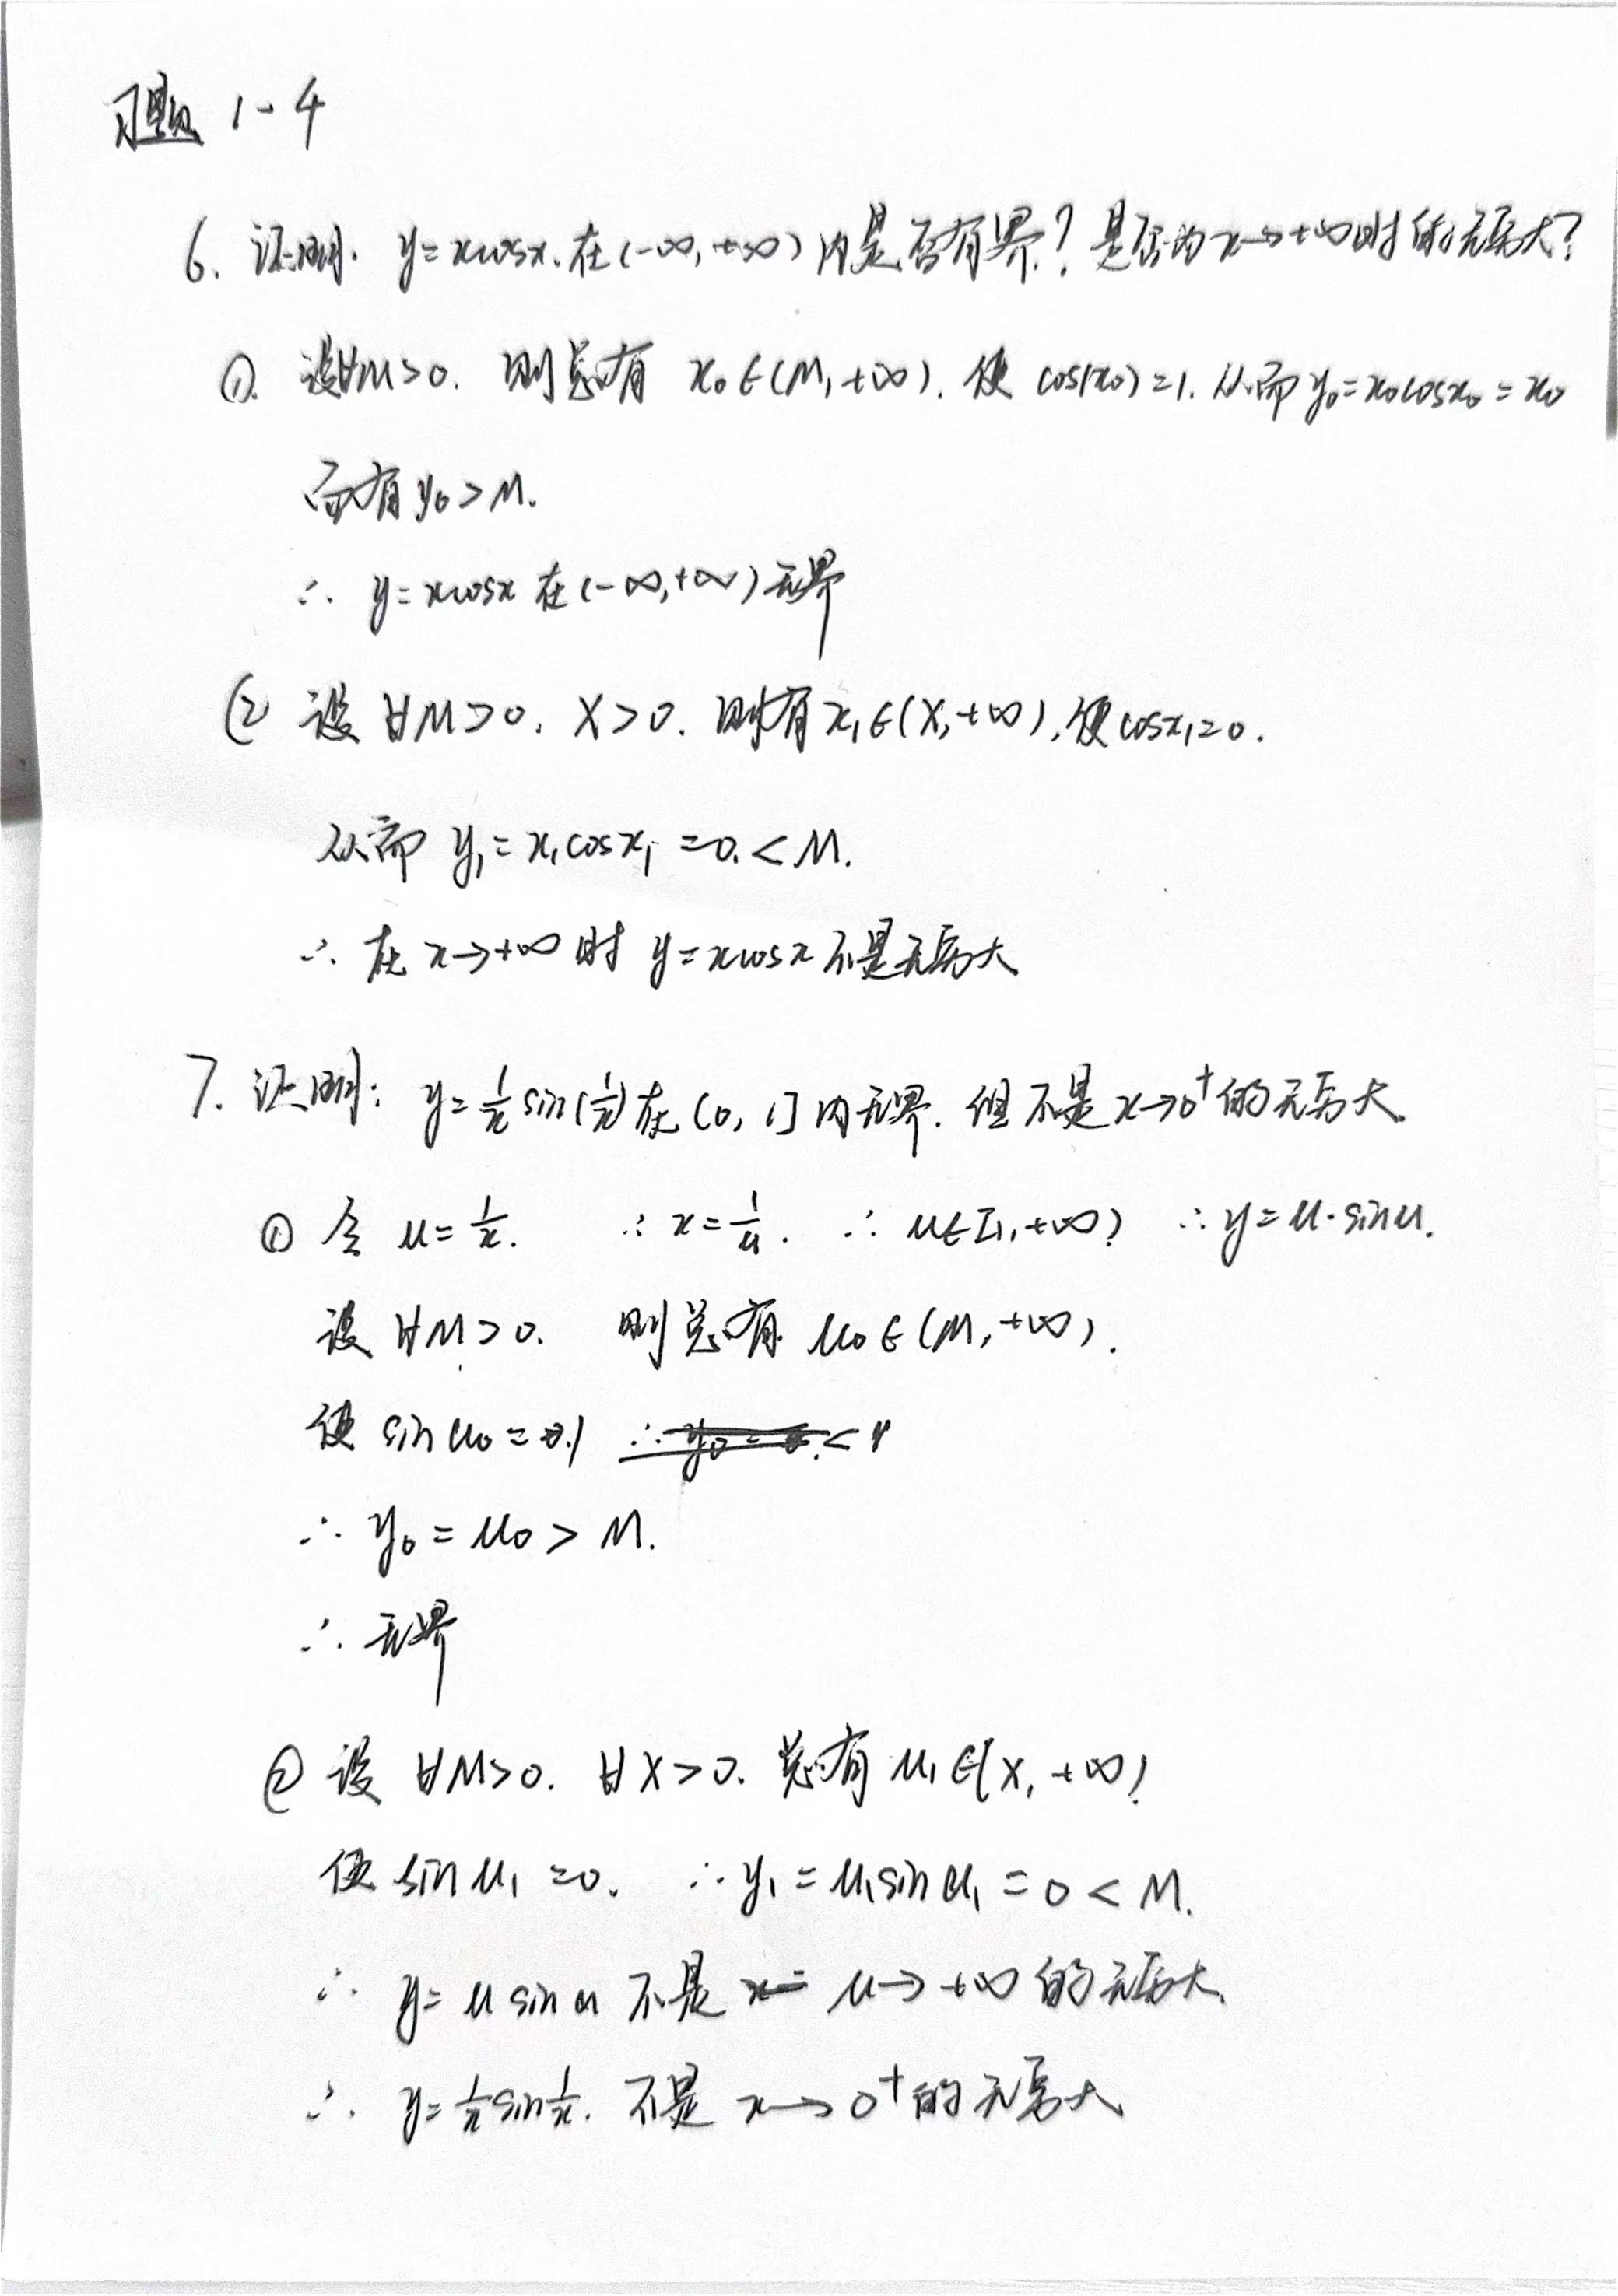 习题 1-4
6. 证明. y=xcosx.在(-∞,+∞)内是否有界?是否为x→+∞时的无穷大?
①. 设∀M>0. 则总有 x₀∈(M,+∞). 使 cos(x₀)=1. 从而y₀=x₀cosx₀=x₀
而有y₀>M.
∴ y=xcosx 在(-∞,+∞)无界
② 设 ∀M>0. X>0. 则有x₁∈(X,+∞),使cosx₁=0.
从而 y₁=x₁cosx₁=0.<M.
∴ 在 x→+∞时 y=xcosx不是无穷大
7. 证明: y=1/x sin(1/x)在(0,1]内无界.但不是x→0⁺的无穷大.
① 令 u=1/x. ∴ x=1/u. ∴ u∈[1,+∞) ∴y=u·sinu.
设 ∀M>0. 则总有 u₀∈(M,+∞).
使 sinu₀=1
∴ y₀=u₀>M.
∴ 无界
② 设 ∀M>0. ∀X>0. 总有 u₁∈(X,+∞)
使sinu₁=0. ∴y₁=u₁sinu₁=0<M.
∴ y=usinu 不是 u→+∞的无穷大.
∴ y=1/x sin1/x. 不是 x→0⁺的无穷大